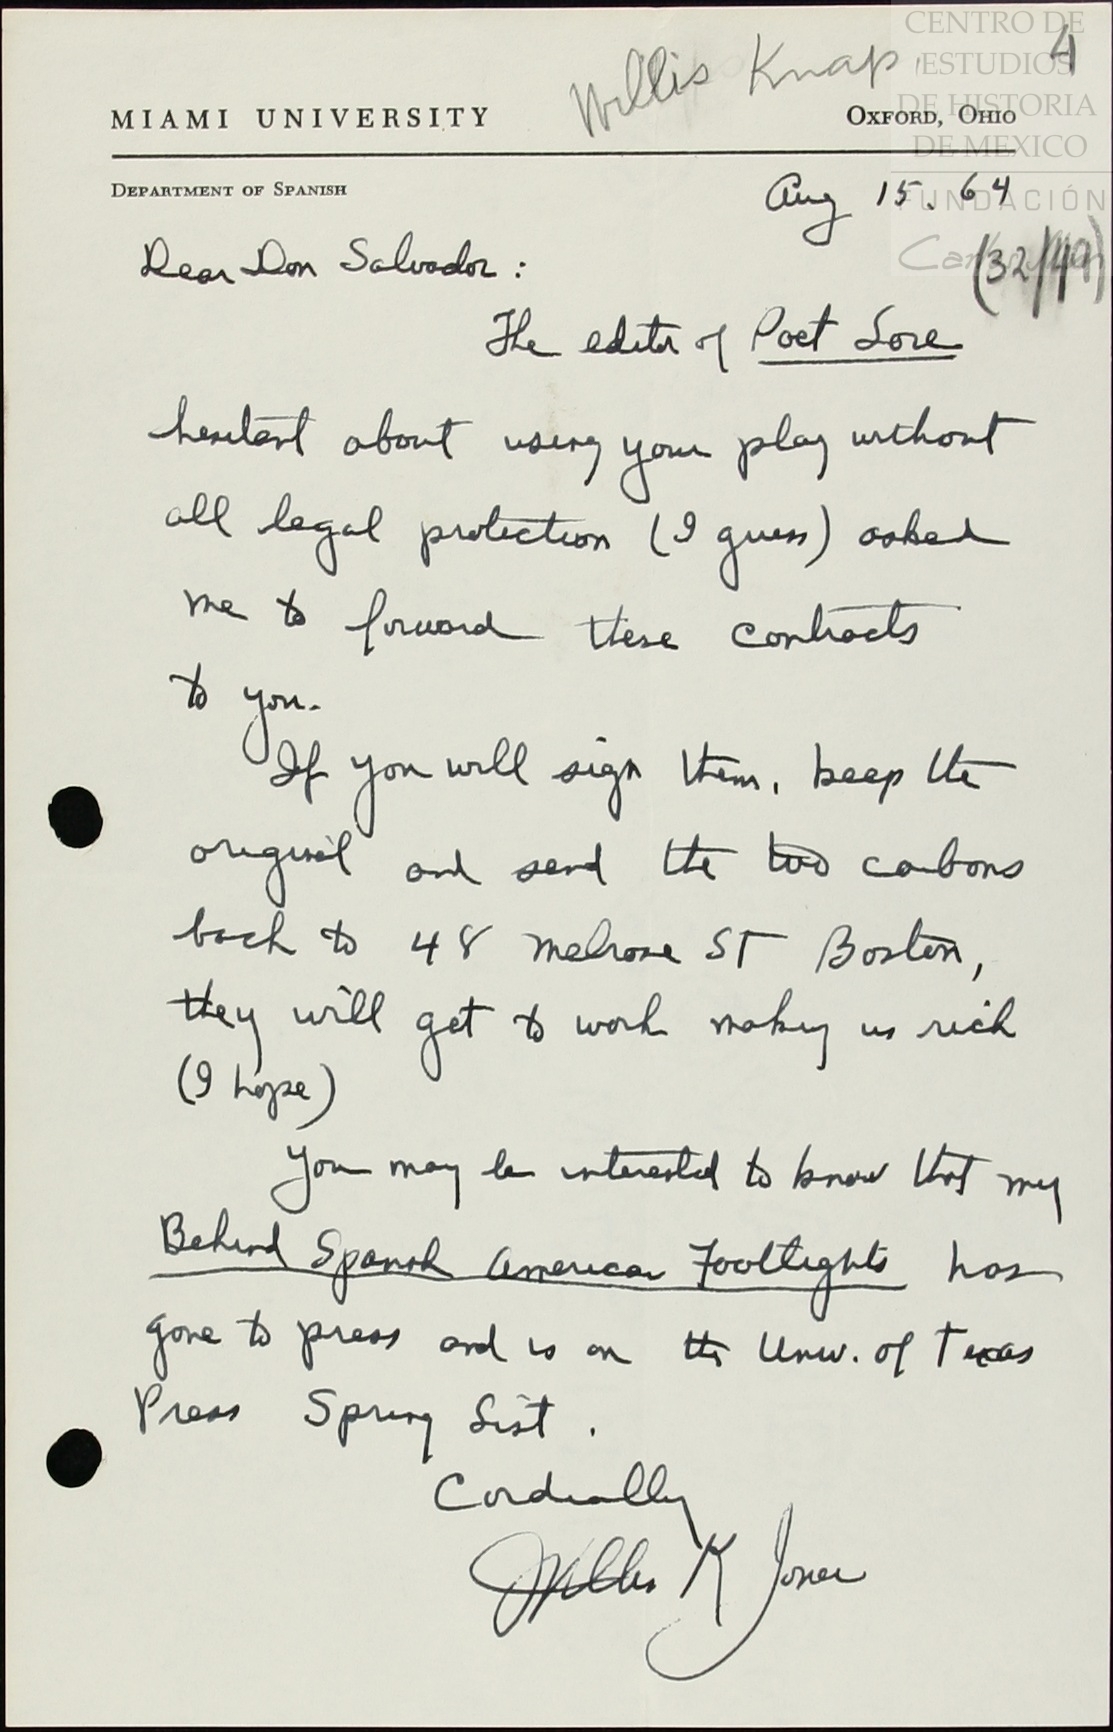 CENTRO DE
ESTUDIOS
DE HISTORIA
DE MEXICO
FUNDACIÓN
Willis Knap. 4
MIAMI UNIVERSITY Oxford, Ohio
Department of Spanish
Aug 15. 64
(32/49)
Dear Don Salvador:
The editor of Poet Lore
hesitant about using your play without
all legal protection (I guess) asked
me to forward these contracts
to you.
If you will sign them, keep the
original and send the two carbons
back to 48 Melrose ST Boston,
they will get to work making us rich
(I hope)
You may be interested to know that my
Behind Spanish American Footlights has
gone to press and is on the Univ. of Texas
Press Spring List.
Cordially
Willis K Jones